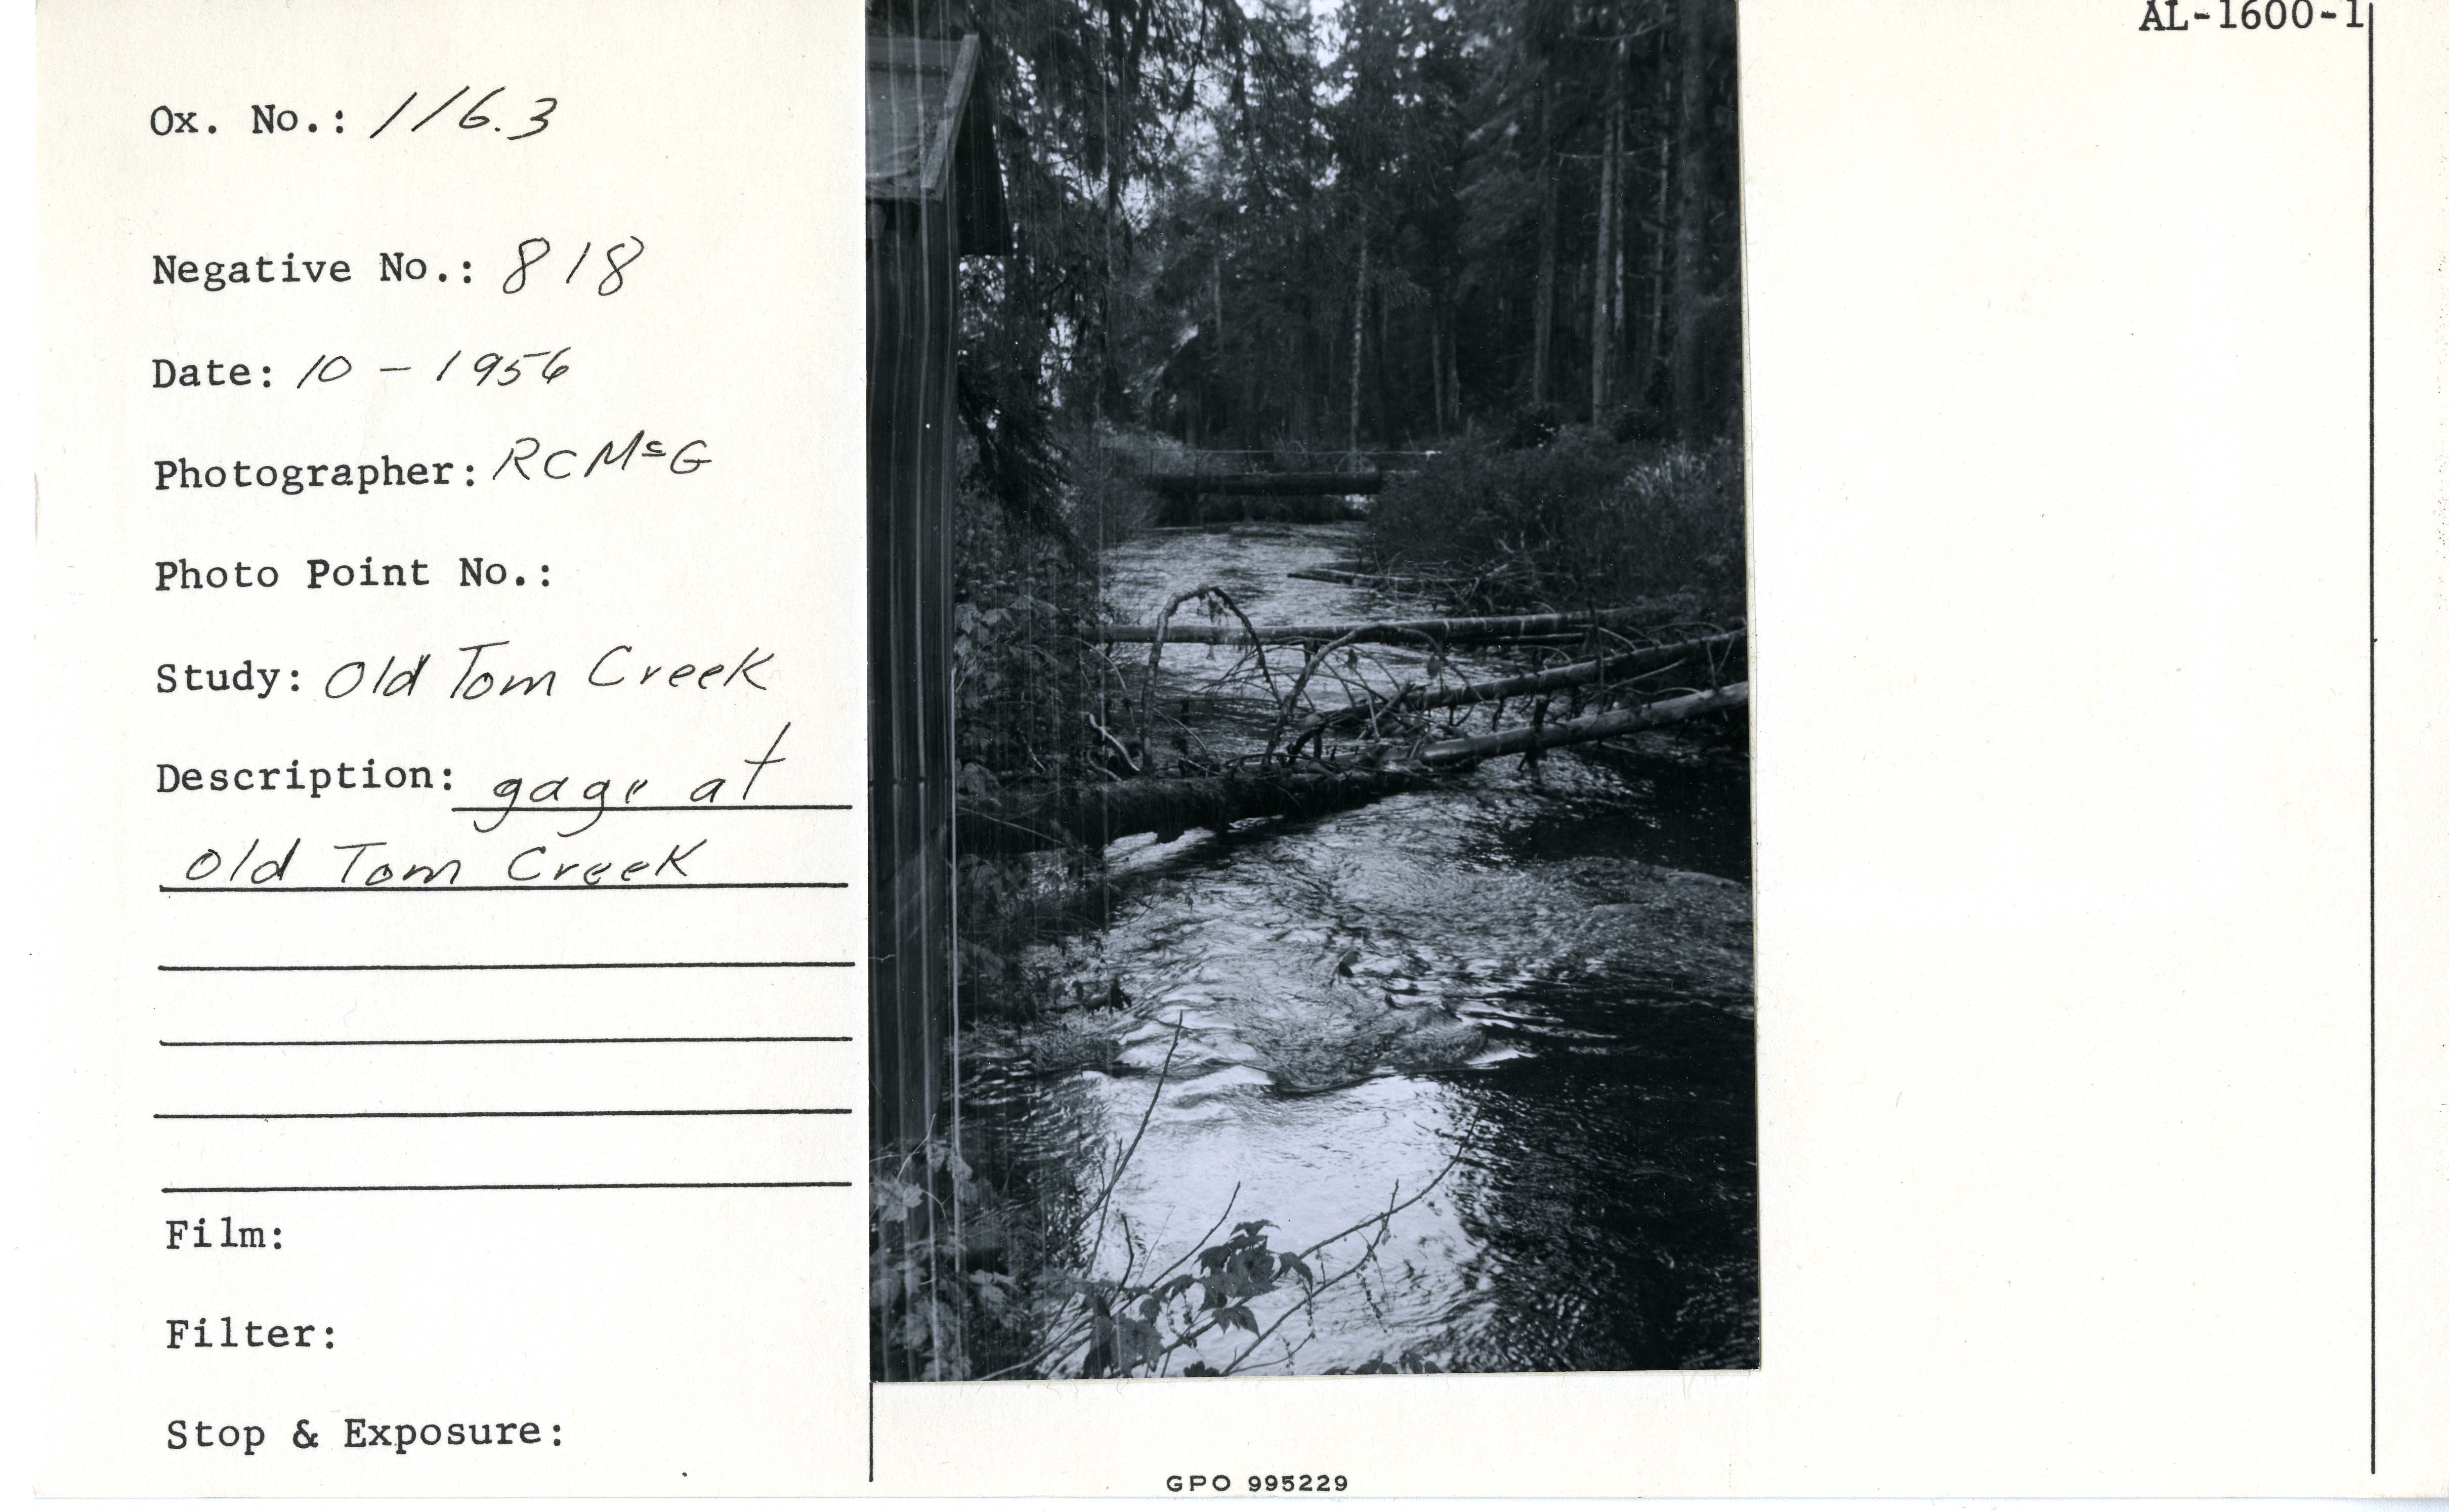 AL-1600-1
Ox. No.: 116.3
Negative No.: 818
Date: 10 - 1956
Photographer: RCMcG
Photo Point No.:
Study: Old Tom Creek
Description: gage at
Old Tom Creek
Film:
Filter:
Stop & Exposure:
GPO 995229